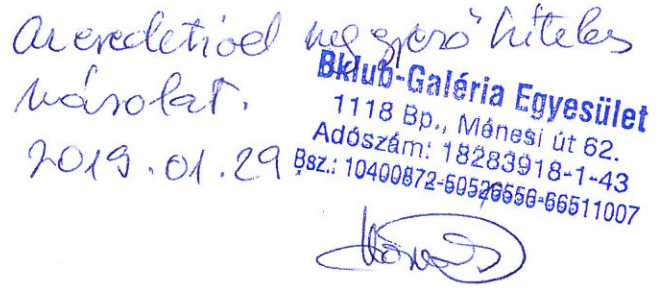 Az eredetivel megegyező hiteles
másolat.
2019.01.29
Bklub-Galéria Egyesület
1118 Bp., Ménesi út 62.
Adószám: 18283918-1-43
Bsz.: 10400872-50526556-66511007